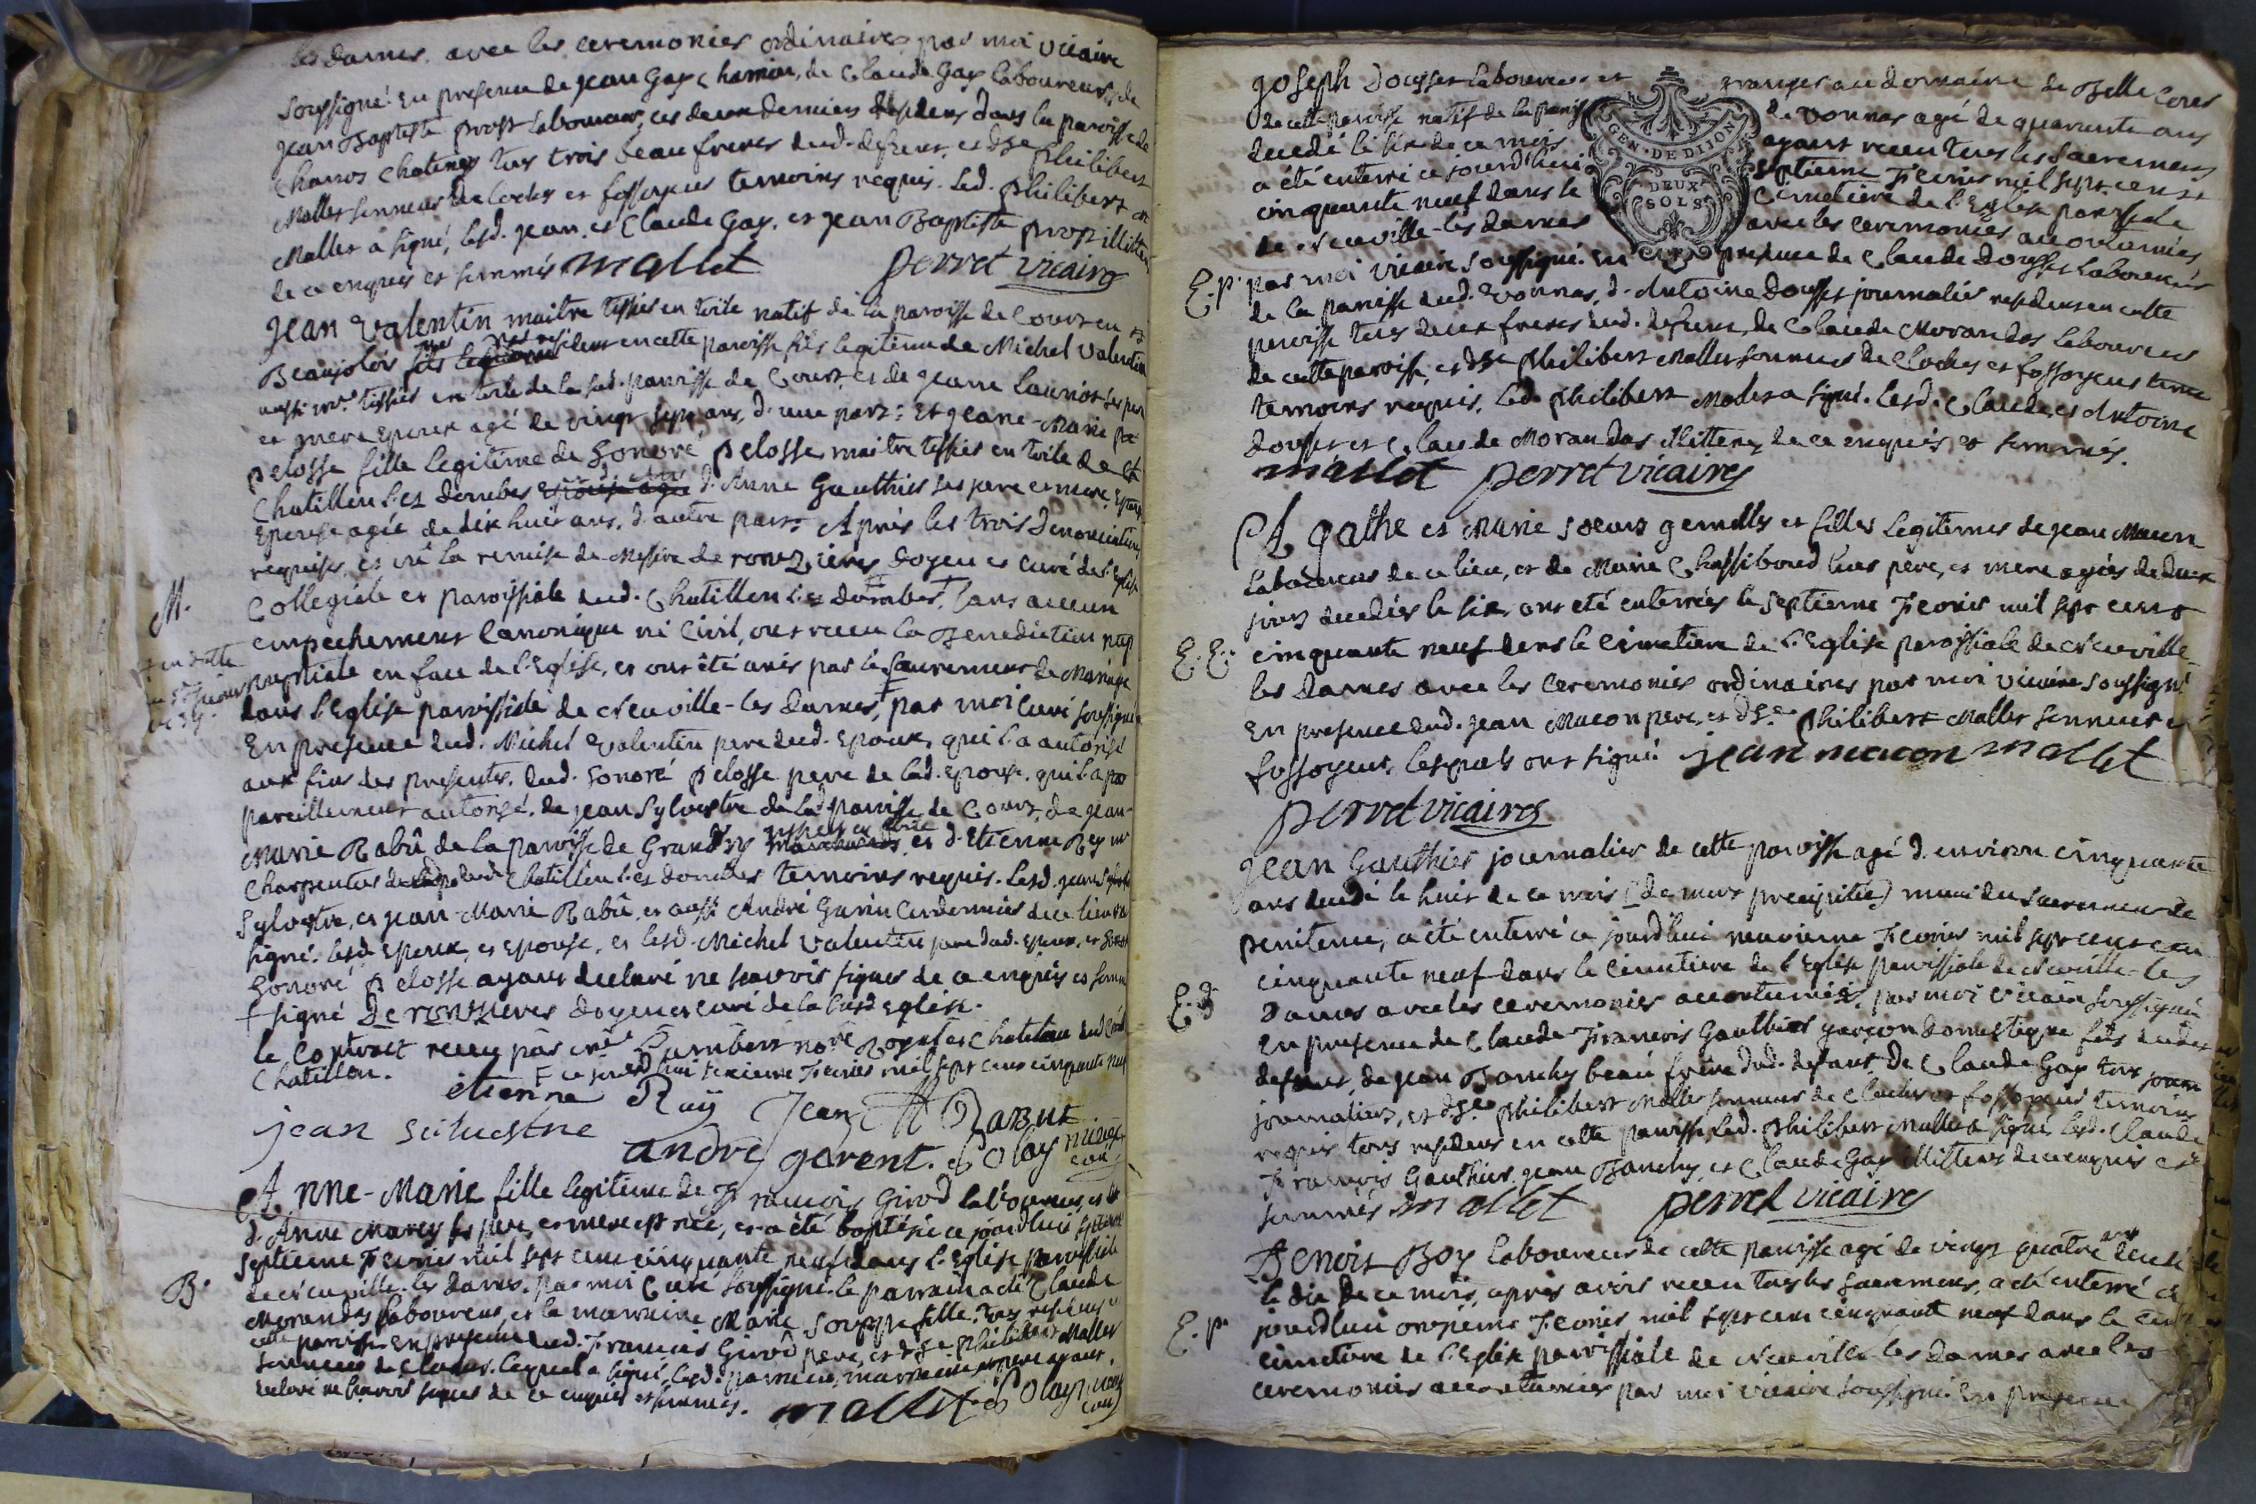 les dames. avec les ceremonies ordinaires par moi vicaire
soussigné. En presence de jean Gay chemin, de claude Gay laboureurs, de
jean Baptiste prost laboureur, ces deux derniers residens dans la paroisse de
chanos chatenay tous trois beau freres dud. defunt, et Philibert
Mallet sonneur de cloches et fossoyeur temoins requis. led. Philibert
Mallet a signé, lesd. jean, et Claude Gay, et jean Baptiste prost illitterés
de ce enquis et sommés mallet perret vicaire
jean Valentin maitre tissier en toile natif de la paroisse de Cours en
Beaujolois resident en cette paroisse fils legitime de Michel Valentin
aussi me. tissier en toile de la sud. paroisse de Cours, et de jeanne Lauriot ses pere
et mere Epoux agé de vingt sept ans, d'une part: Et jeane-Marie
pelosse fille legitime de honoré pelosse maitre tissier en toile de
Chatillon les dombes d'Anne Gauthier ses pere et mere
Epouse agée de dix huit ans, d'autre part: Après les trois denonciations
requises, et vû la remise de Messire de ronzieres Doyen et curé de l'Eglise
Collegiale et paroissiale dud. Chatillon les dombes, sans aucun
empechement Canonique ni Civil, ont receu la Benediction nup
nuptiale en face de l'Eglise, et ont été unis par le Sacrement de Mariage
dans l'Eglise paroissiale de Neuville-les dames, par moi Curé soussigné
M.
En presence dud. Michel Valentin pere dud. Epoux, qui l'a autorisé
aux fins des presentes, dud. honoré pelosse pere de lad. Epouse, qui l'a
pareillement autorisé, de jean Sylvestre de lad. paroisse de Cours, de jean-
Marie Rabû de la paroisse de Grandry tissier en toile, et d'Etienne Rey
Charpentier dud. Chatillon les dombes temoins requis. lesd. jean
Sylvestre, et jean-Marie Rabû, et aussi André Garin Cordonnier de ce lieu
signé. lesd. Epoux, et Epouse, et lesd. Michel Valentin pere dud. Epoux, et
honoré pelosse ayant declaré ne sçavoir signer de ce enquis et sommés
signé De ronzieres doyen et curé de la susd. Eglise.
le Contract receu par me. Royal et Chatelain
Chatillon.
ce jourd'hui Fevrier mil sept cens cinquante neuf
etienne Ray jean M Rabut
jean siluestre
andre garent.
Anne-Marie fille legitime de François Girod laboureur, et
d'Anne Marey ses pere, et mere est née, et a été baptisée ce jourd'hui
septieme Fevrier mil sept cens cinquante neuf dans l'Eglise paroissiale
de Neuville-les dames, par moi Curé soussigné. le parrain a été Claude
B.
Morandas laboureur, et la marraine Marie fille, tous residens
cette paroisse. En presence dud. François Girod pere, et Philibert Mallet
sonneur de cloches. lequel a signé, lesd. parrain, marraine et pere ayant
declaré ne sçavoir signer de ce enquis et sommés.
mallet
joseph Dousset laboureur et granger au domaine de Belle
de cette paroisse natif de la paroisse de Vonnas agé de quarante ans
decedé le six de ce mois ayant receu tous les Sacremens
a été enterré ce jourd'hui septieme Fevrier mil sept cens
cinquante neuf dans le Cimetiere de l'Eglise paroissiale
de Neuville-les dames avec les ceremonies accoutumées
GEN. DE DIJON
DEUX
SOLS
E. p. par moi vicaire soussigné. En presence de Claude Dousset laboureur
de la paroisse dud. Vonnas, d'Antoine Dousset journalier resident en cette
paroisse tous deux freres dud. defunt, de Claude Morandas laboureur
de cette paroisse, et Philibert Mallet sonneur de cloches et fossoyeur
temoins requis. led. Philibert Mallet a signé. lesd. Claude, et Antoine
Dousset et Claude Morandas illitterés de ce enquis et sommés.
mallet perret vicaire
Agathe et Marie soeurs gemelles et filles legitimes de jean Macon
laboureur de ce lieu, et de Marie Chassiboud leurs père, et mere agées de deux
jours decedées le six, ont été enterrées le septieme Fevrier mil sept cens
E. E. cinquante neuf dans le Cimetiere de l'Eglise paroissiale de Neuville-
les dames avec les ceremonies ordinaires par moi vicaire soussigné
En presence dud. jean Macon pere, et Philibert Mallet sonneur et
fossoyeur, lesquels ont signé. jean macon mallet
perret vicaire
jean Gauthier journalier de cette paroisse agé d'environ cinquante
ans decedé le huit de ce mois (de mort precipitée) muni du sacrement de
penitence, a été enterré ce jourd'hui neuvieme Fevrier mil sept cens
cinquante neuf dans le Cimetiere de l'Eglise paroissiale de Neuville-les
E. dames avec les ceremonies accoutumées, par moi vicaire soussigné
En presence de Claude François Gauthier garçon domestique fils dud.
defunt, de jean Banchy beau frere dud. defunt, de Claude Gay tous
journaliers, et Philibert Mallet sonneur de cloches et fossoyeur temoins
requis tous residens en cette paroisse. led. Philibert Mallet a signé, lesd. Claude
François Gauthier, jean Banchy, et Claude Gay illitterés de ce enquis et
sommés mallet perret vicaire
Benoit Boy laboureur de cette paroisse agé de vingt quatre ans decedé
le dix de ce mois, après avoir receu tous les sacremens, a été enterré ce
E. p. jourd'hui onzieme Fevrier mil sept cens cinquante neuf dans le
cimetiere de l'Eglise paroissiale de Neuville les dames avec les
ceremonies accoutumées par moi vicaire soussigné. En presence